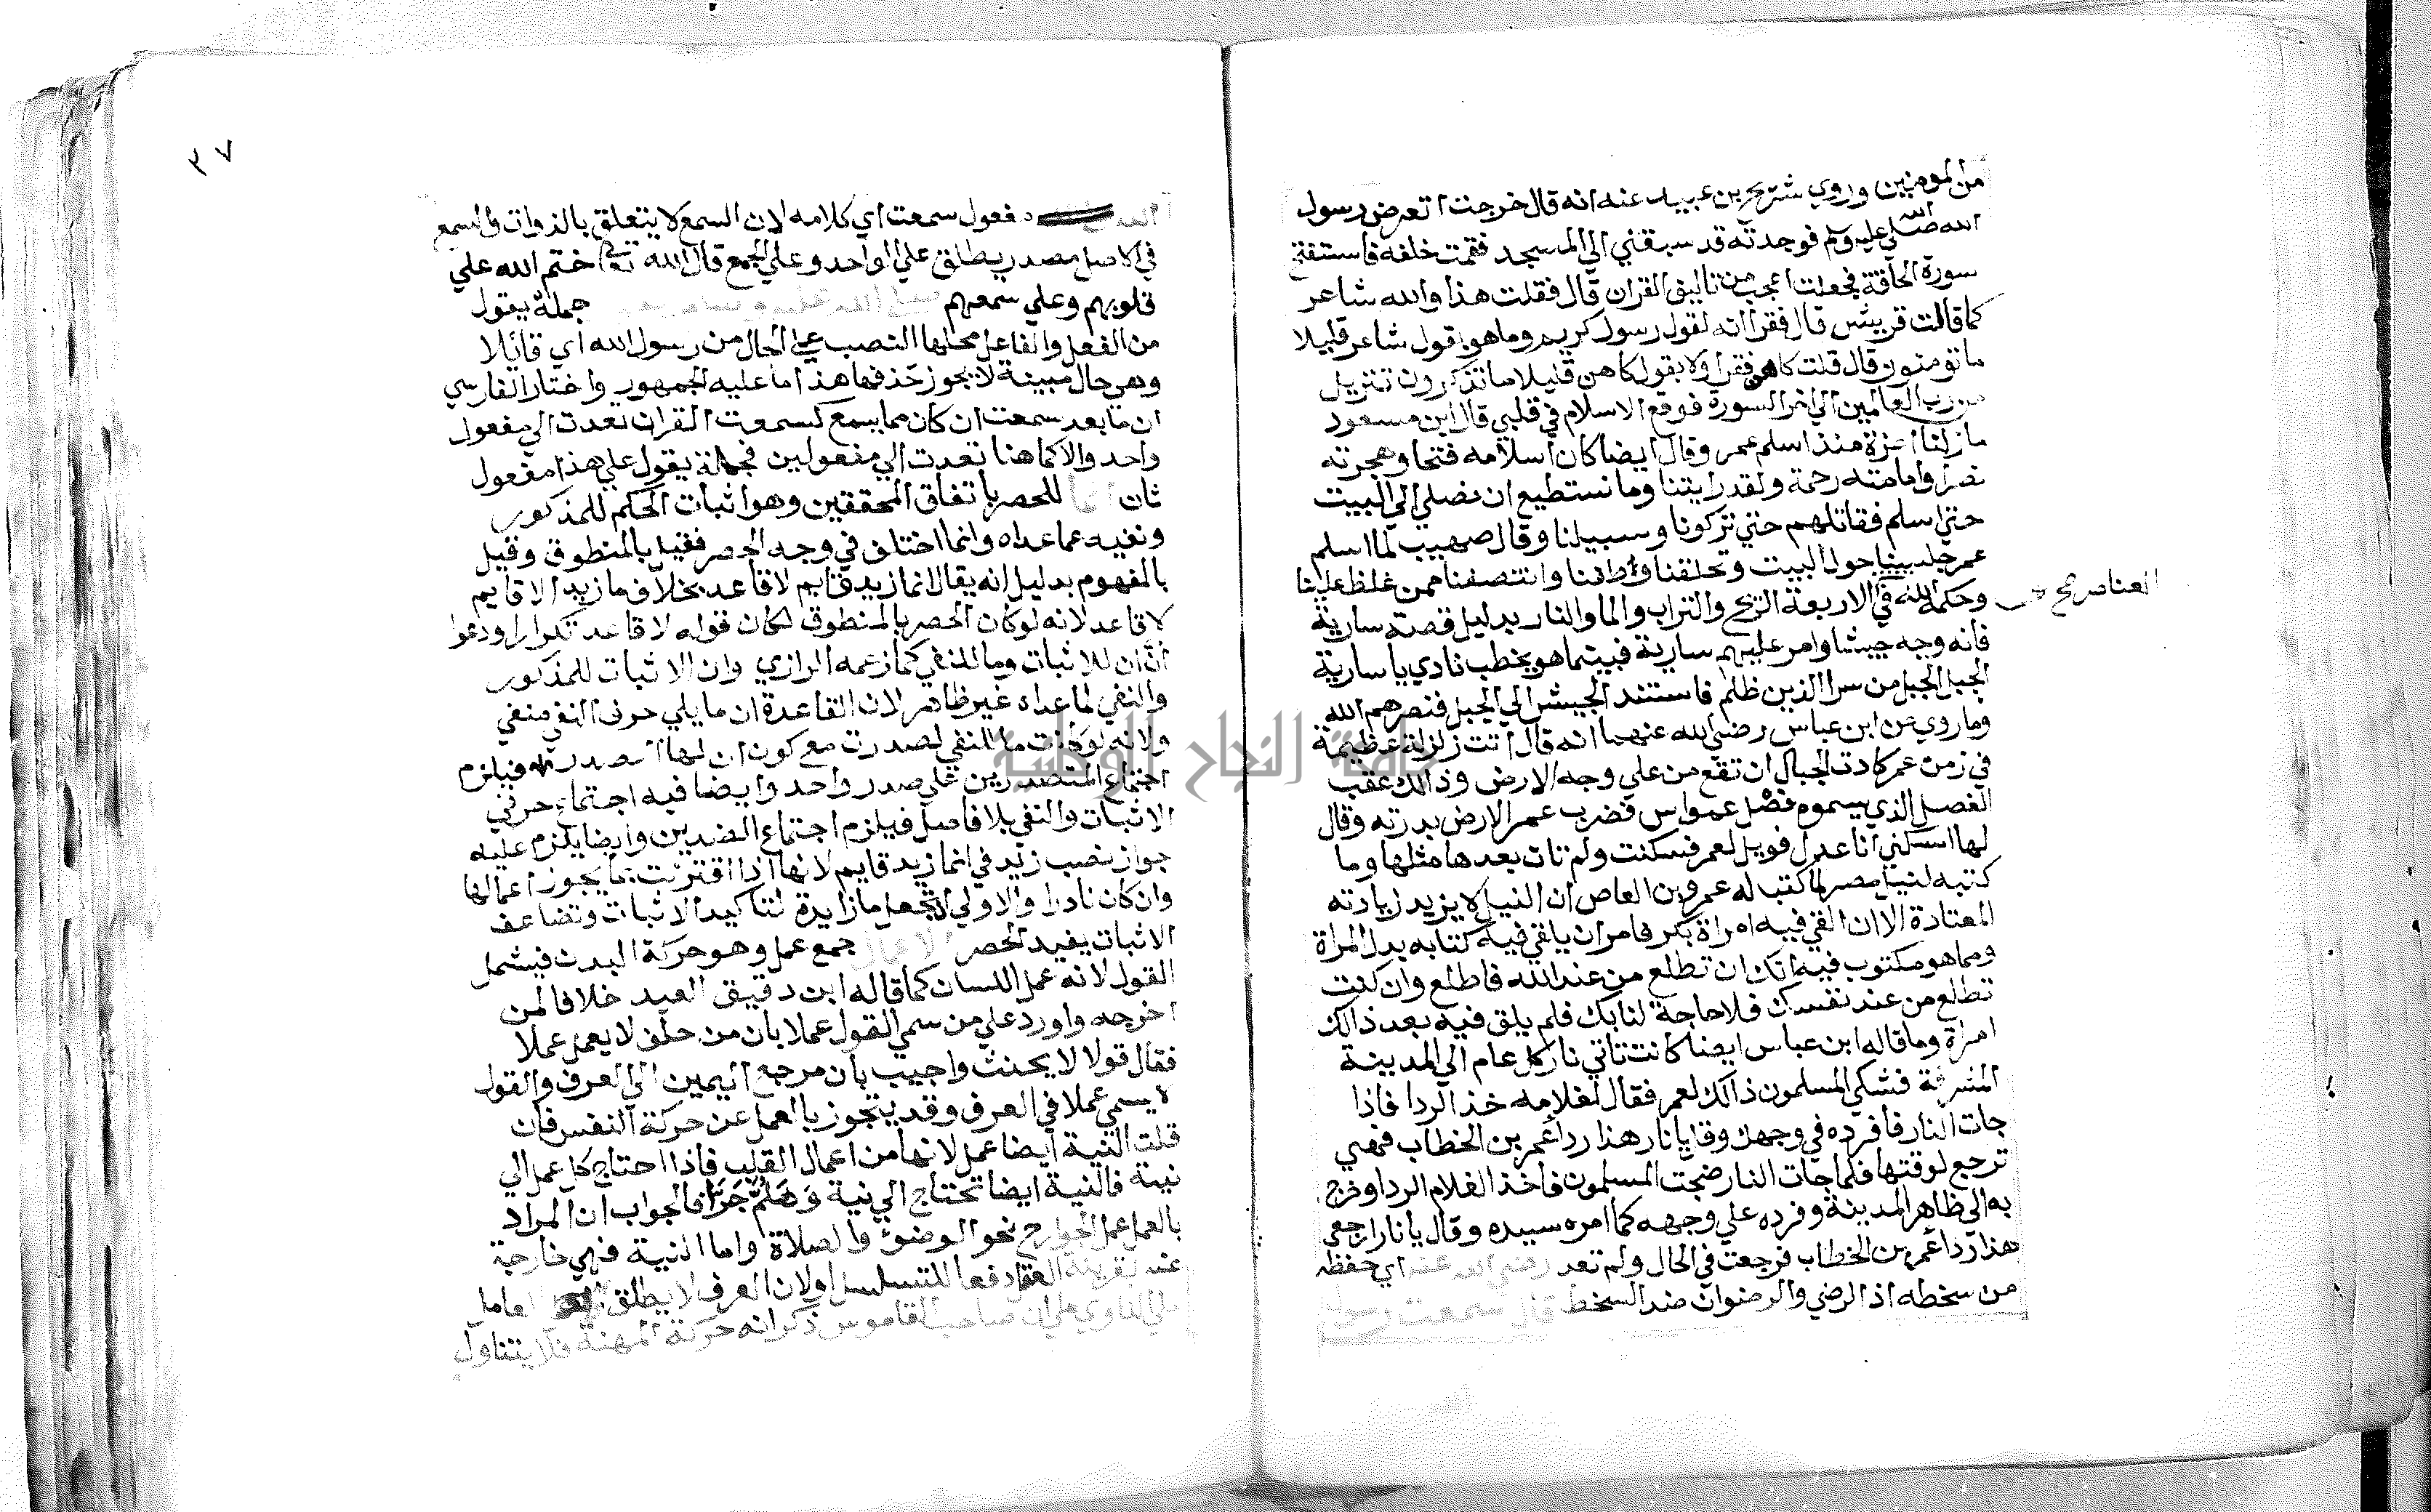 من المومنين وروي شريح بن عبيد عنه انه قال خرجت اتعرض رسول
الله صلى الله عليه وسلم فوجدته قد سبقني الي المسجد فقمت خلفه فاستفتح
سورة الحاقة فجعلت اعجب من تاليف القران قال فقلت هذا والله شاعر
كما قالت قريش قال فقرا انه لقول رسول كريم وما هو بقول شاعر قليلا
ما تومنون قال قلت كاهن فقرا ولا بقول كاهن قليلا ما تذكرون تنزيل
من رب العالمين الي اخر السورة فوقع الاسلام في قلبي قال ابن مسعود
مازلنا اعزة منذ اسلم عمر وقال ايضا كان اسلامه فتحا وهجرته
نصرا وامامته رحمة ولقد رايتنا وما نستطيع ان نصلي الي البيت
حتي اسلم فقاتلهم حتي تركونا وسبيلنا وقال صهيب لما اسلم
عمر جلسنا حول البيت وتحلقنا وطفنا وانتصفنا ممن غلظ علينا
وحكمه الله في الاربعة الريح والتراب والما والنار بدليل قصته سارية
العناصر صح
فانه وجه جيشا وامر عليهم سارية فبينما هو يخطب نادي يا سارية
الجبل الجبل من سرا الذين ظلم فاستند الجيش الي الجبل فنصرهم الله
وما روي عن ابن عباس رضي الله عنهما انه قال اتت زلزلة عظيمة
في زمن عمر كادت الجبال ان تقع من علي وجه الارض وذالك عقب
الفصل الذي يسموه فصل عمواس فضرب عمر الارض بدرته وقال
لها اسكني انا عدل فويل لعمر فسكنت ولم تات بعدها مثلها وما
كتبه لنيل مصر لما كتب له عمرو بن العاص ان النيل لا يزيد زيادته
المعتادة الا ان القي فيه امراة بكر فامر ان يلقي فيه كتابه بدل المراة
ومما هو مكتوب فيه انك ان تطلع من عند الله فاطلع وان كنت
تطلع من عند نفسك فلا حاجة لنا بك فلم يلق فيه بعد ذالك
امراة وما قاله ابن عباس ايضا كانت تاتي نار كل عام الي المدينة
المشرفة فشكي المسلمون ذالك لعمر فقال لغلامه خذ الردا فاذا
جات النار فافرده في وجهك وقل يا نار هذا ردا عمر بن الخطاب فهي
ترجع لوقتها فلما جات النار ضجت المسلمون فاخذ الغلام الردا وخرج
به الي ظاهر المدينة وفرده علي وجهه كما امره سيده وقال يا نار ارجعي
هذا ردا عمر بن الخطاب فرجعت في الحال ولم تعد رضي الله عنه اي حفظه
من سخطه اذ الرضي والرضوان ضد السخط قال سمعت رسول
٣٧
مفعول سمعت اي كلامه لان السمع لا يتعلق بالذوات والسمع
في الاصل مصدر يطلق علي الواحد وعلي الجمع قال الله تعالي ختم الله علي
قلوبهم وعلي سمعهم صلى الله عليه وسلم جملة يقول
من الفعل والفاعل محلها النصب علي الحال من رسول الله اي قائلا
وهي حال مبينة لا يجوز حذفها هذا ما عليه الجمهور واختار الفارسي
ان ما بعد سمعت ان كان مما يسمع كسمعت القران تعدت الي مفعول
واحد والا كما هنا تعدت الي مفعولين فجملة يقول علي هذا مفعول
ثان انما للحصر باتفاق المحققين وهو اثبات الحكم للمذكور
ونفيه عما عداه وانما اختلف في وجه الحصر فقيل بالمنطوق وقيل
بالمفهوم بدليل انه يقال انما زيد قايم لا قاعد بخلاف ما زيد الا قايم
لا قاعد لانه لو كان الحصر بالمنطوق لكان قوله لا قاعد تكرارا ودعوا
ان ان للاثبات وما للنفي كما زعمه الرازي وان الاثبات للمذكور
والنفي لما عداه غير ظاهر لان القاعدة ان ما يلي حرف النفي منفي
ولانه لو كانت ما للنفي لصدرت مع كون ان لها الصدر فيلزم
اجتماع المتصدرين علي صدر واحد وايضا فيه اجتماع حرفي
الاثبات والنفي بلا فاصل فيلزم اجتماع الضدين وايضا يلزم عليه
جواز نصب زيد في انما زيد قايم لانها اذا اقترنت بما يجوز اعمالها
وان كان نادرا والاولي تجعل ما زايدة لتاكيد الاثبات وتضاعف
الاثبات يفيد الحصر الاعمال جمع عمل وهو حركة البدن فيشمل
القول لانه عمل اللسان كما قاله ابن دقيق العيد خلافا لمن
اخرجه واورد علي من سمي القول عملا بان من حلف لا يعمل عملا
فقال قولا لا يحنث واجيب بان مرجع اليمين الي العرف والقول
لا يسمي عملا في العرف وقد يتجوز بالعمل عن حركة النفس فان
قلت النية ايضا عمل لانها من اعمال القلب فاذا احتاج كل عمل الي
نية فالنية ايضا تحتاج الي نية وهلم جرا فالجواب ان المراد
بالعمل عمل الجوارح نحو الوضوء والصلاة واما النية فهي خارجة
عنه بقرينة العقل دفعا للتسلسل ولان العرف لا يطلق العمل
صاحب القاموس ذكر انه حركة المهنة فلا يتناول
جامعة النجاح الوطنية